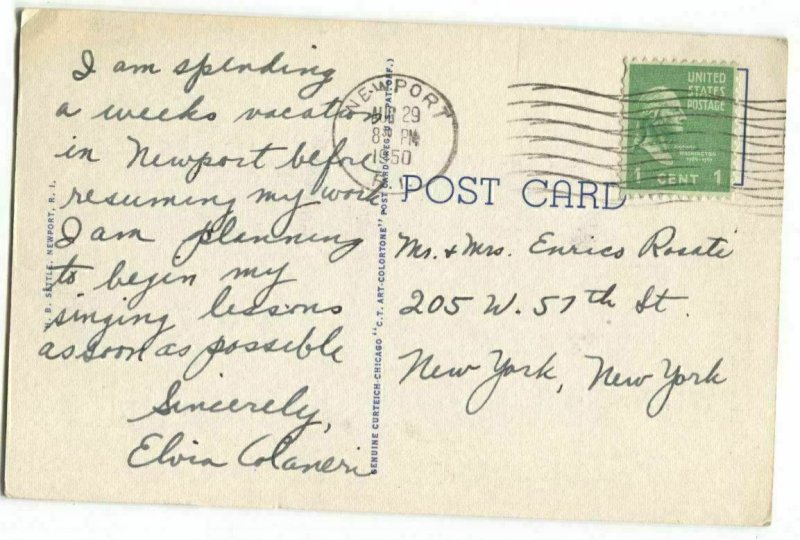 I am spending
a weeks vacation
in Newport before
resuming my work
I am planning
to begin my
singing lessons
as soon as possible
Sincerely,
Elvia Colaneri
B. SETTLE, NEWPORT, R. I.
GENUINE CURTEICH-CHICAGO "C.T. ART-COLORTONE" POST CARD (REG. U.S. PAT. OFF.)
NEWPORT
AUG 29
8 30 PM
1950
R.I.
UNITED
STATES
POSTAGE
WASHINGTON
1 CENT 1
POST CARD
Mr. & Mrs. Enrico Rosati
205 W. 57th St.
New York, New York